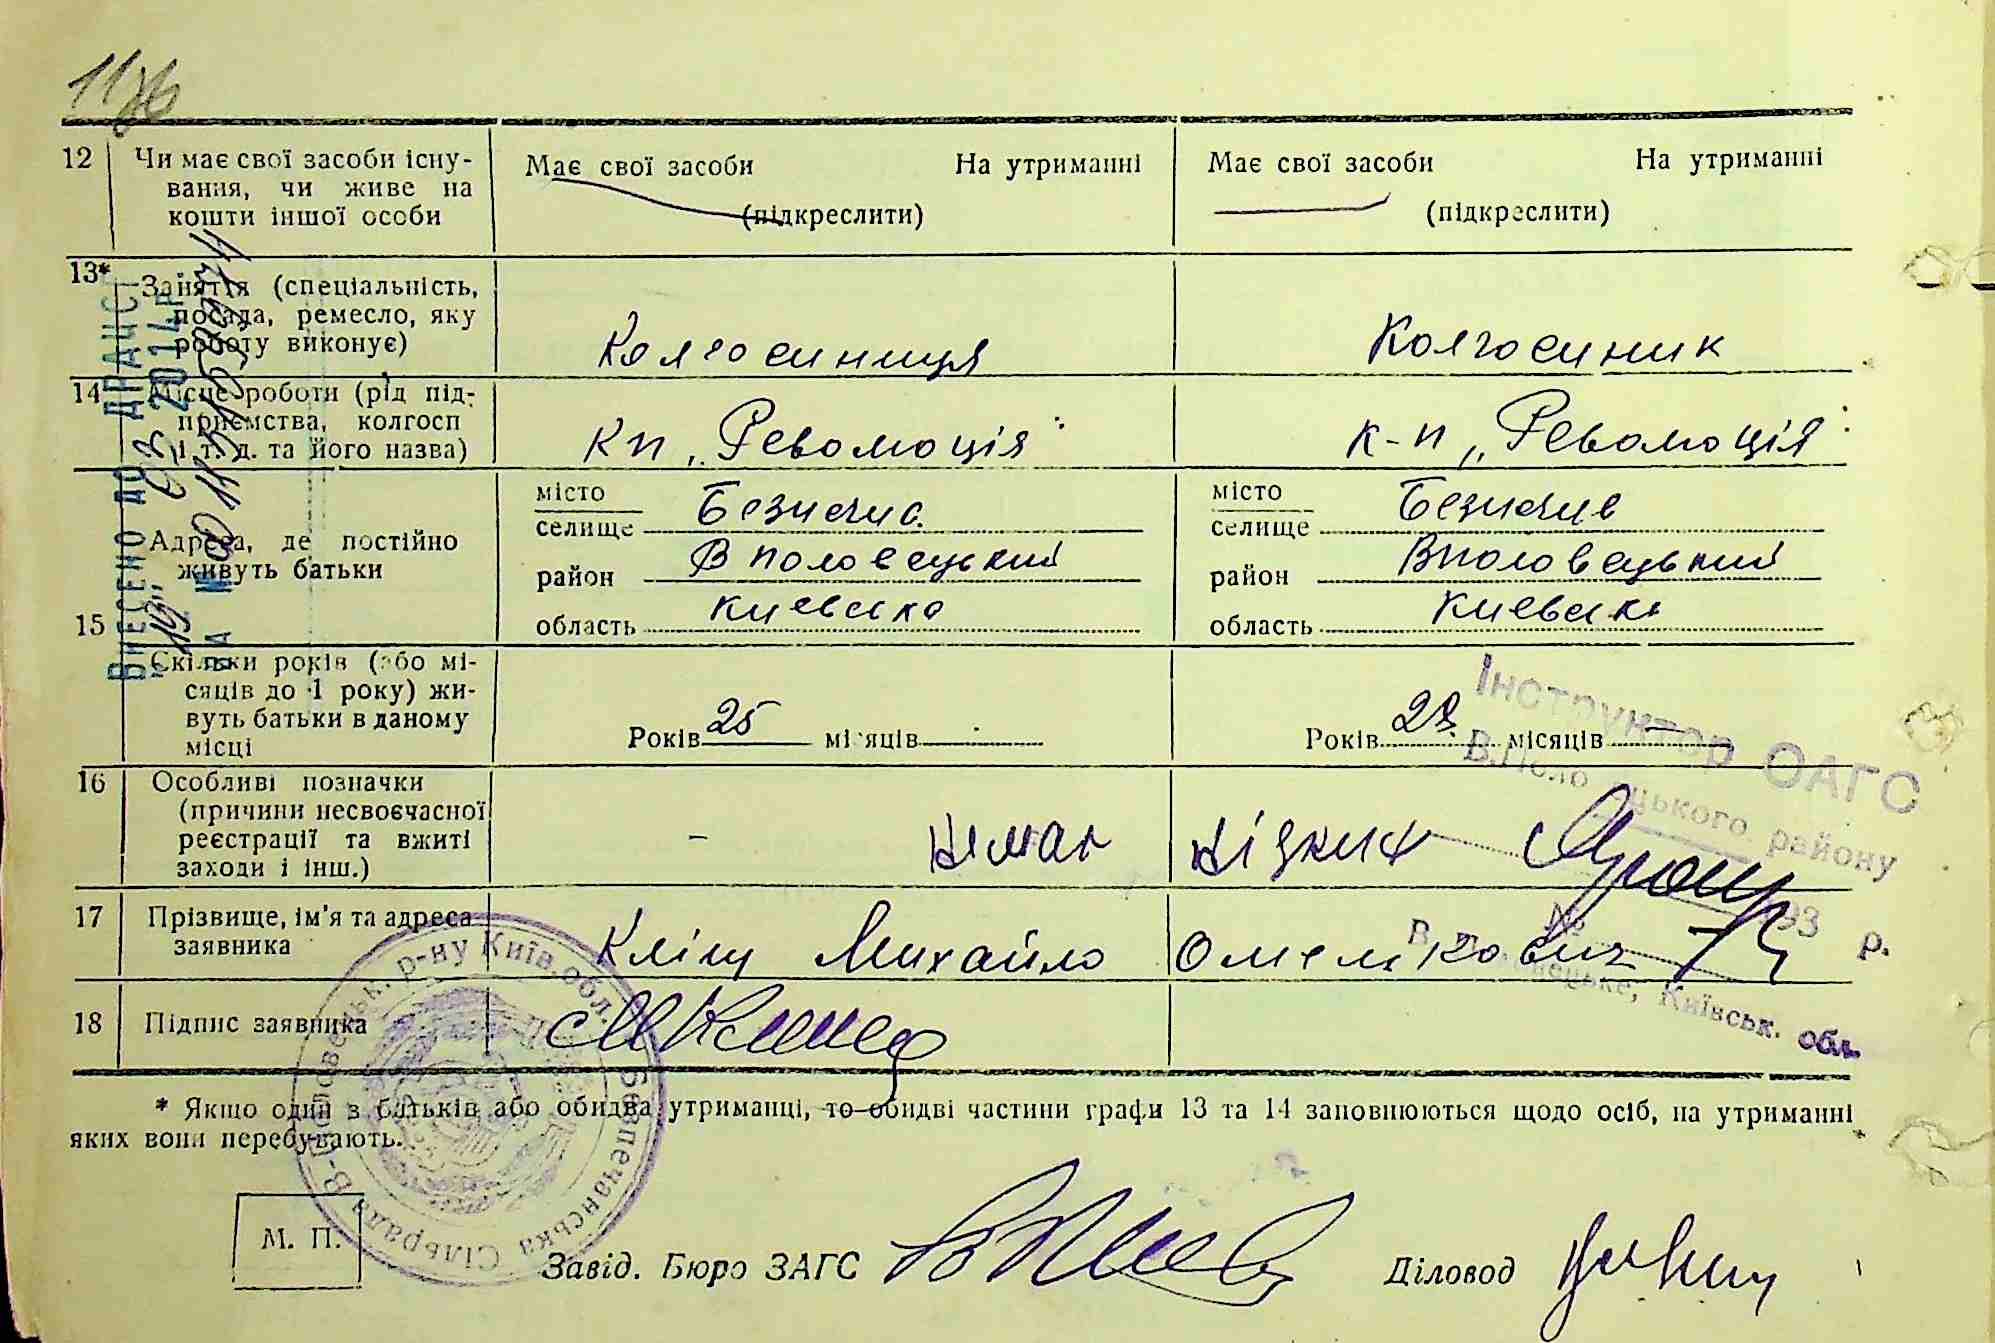 12 Чи має свої засоби існу- Має свої засоби На утриманні Має свої засоби На утриманні
вання, чи живе на
кошти іншої особи (підкреслити) (підкреслити)
13* Заняття (спеціальність,
посада, ремесло, яку
роботу виконує) Колгоспниця Колгоспник
14 Місце роботи (рід під-
приємства, колгосп
і т. д. та його назва) кп „Революція" к-п „Революція"
місто місто
селище селище
Адреса, де постійно
живуть батьки район В половецький район Вполовецький
15 область Киевска область
Скільки років (або мі-
сяців до 1 року) жи-
вуть батьки в даному
місці Років 25 місяців Років місяців
16 Особливі позначки
(причини несвоєчасної
реєстрації та вжиті
заходи і інш.) –
17 Прізвище, ім'я та адреса
заявника Михайло
18 Підпис заявника
* Якщо один з батьків або обидва утриманці, то обидві частини графи 13 та 14 заповнюються щодо осіб, на утриманні
яких вони перебувають.
М. П. Завід. Бюро ЗАГС Діловод
ВНЕСЕНО ДО ДРАЦС
2014р
Інструктор ОАГС
району
193 р.
Київськ. обл.
Безпечанська Сільрада В-Половецьк. р-ну Київ. обл.